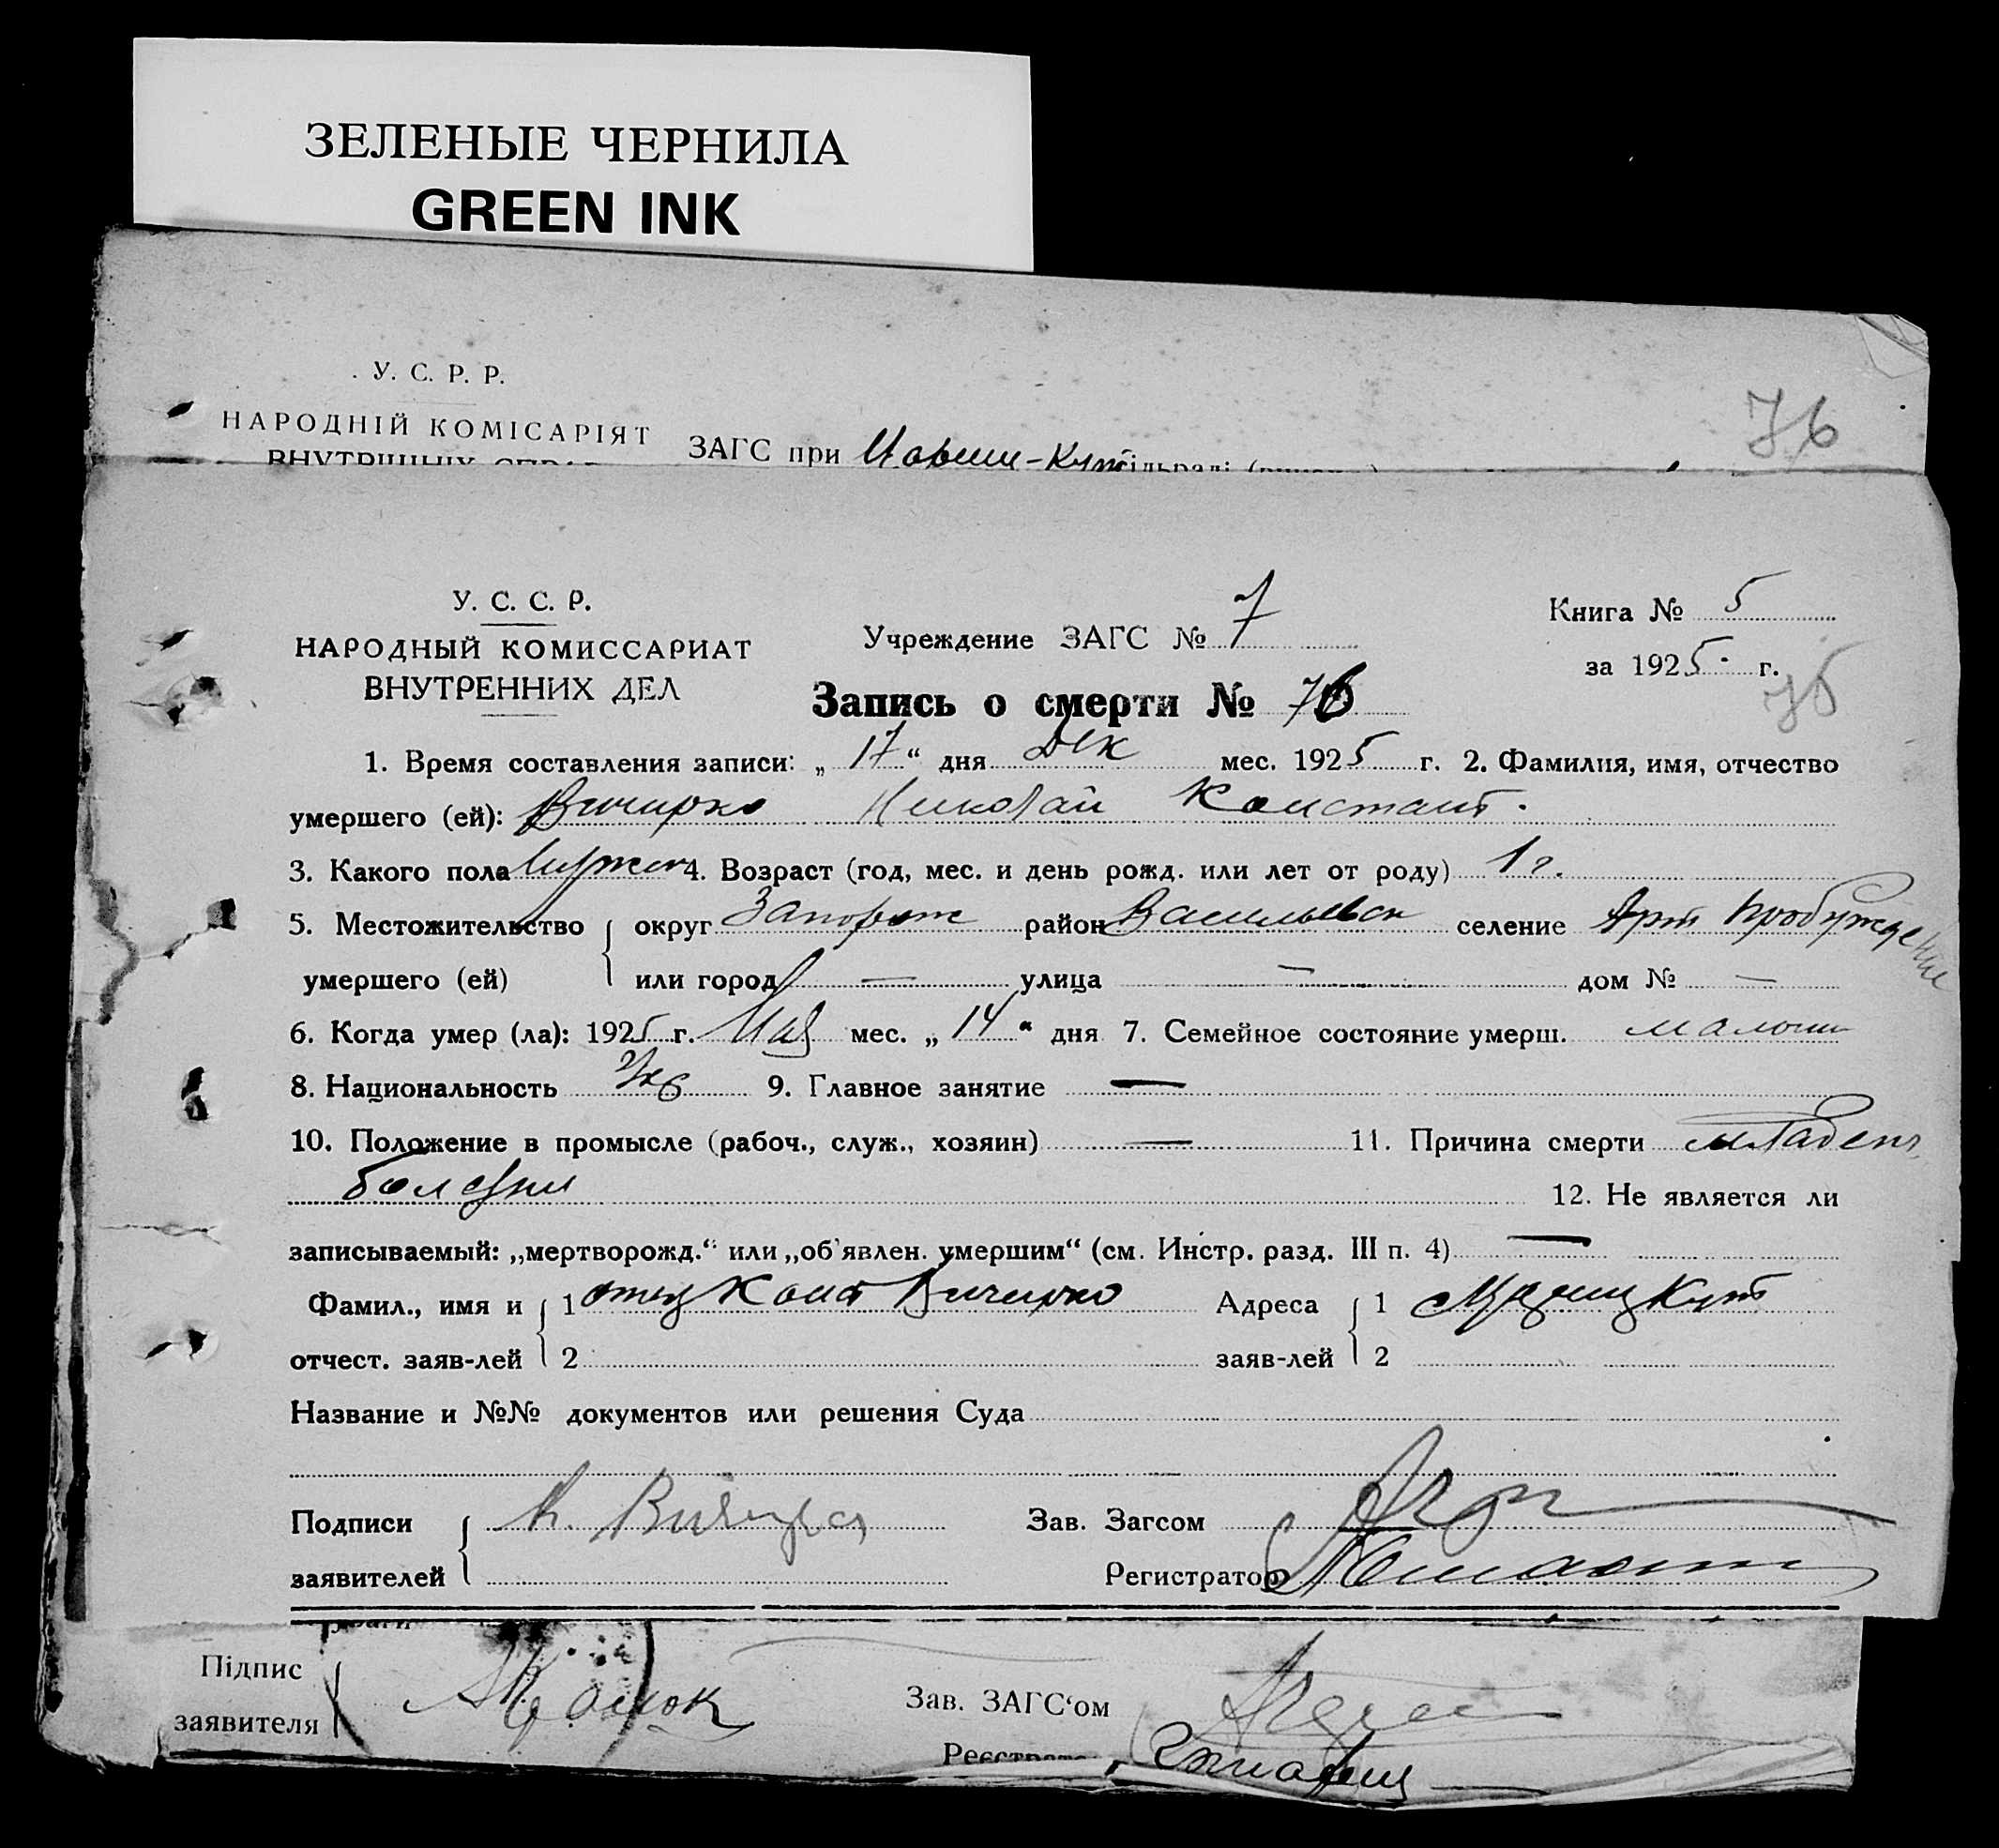 ЗЕЛЕНЫЕ ЧЕРНИЛА
GREEN INK
У. С. Р. Р.
НАРОДНІЙ КОМІСАРІЯТ
ВНУТРІШНІХ СПРАВ ЗАГС при
76
У. С. С. Р.
НАРОДНЫЙ КОМИССАРИАТ
ВНУТРЕННИХ ДЕЛ
Учреждение ЗАГС № 7
Книга № 5
за 1925 г.
Запись о смерти № 76
1. Время составления записи: „17“ дня Дек мес. 1925 г. 2. Фамилия, имя, отчество
умершего (ей): Вичирко Николай Констант.
3. Какого пола Мужск 4. Возраст (год, мес. и день рожд. или лет от роду) 1 г.
5. Местожительство округ Запорож район Васильевск селение Арт Пробуждение
умершего (ей) или город — улица — дом № —
6. Когда умер (ла): 1925 г. Мая мес. „14“ дня 7. Семейное состояние умерш.
8. Национальность Укр 9. Главное занятие —
10. Положение в промысле (рабоч., служ., хозяин) — 11. Причина смерти младенч.
болезни 12. Не является ли
записываемый: „мертворожд.“ или „об'явлен. умершим“ (см. Инстр. разд. III п. 4) —
Фамил., имя и 1 отец Конст Вичирко Адреса 1 Кут
отчест. заяв-лей 2 заяв-лей 2
Название и №№ документов или решения Суда
Подписи Зав. Загсом
заявителей Регистратор
Підпис
заявителя Зав. ЗАГС‘ом